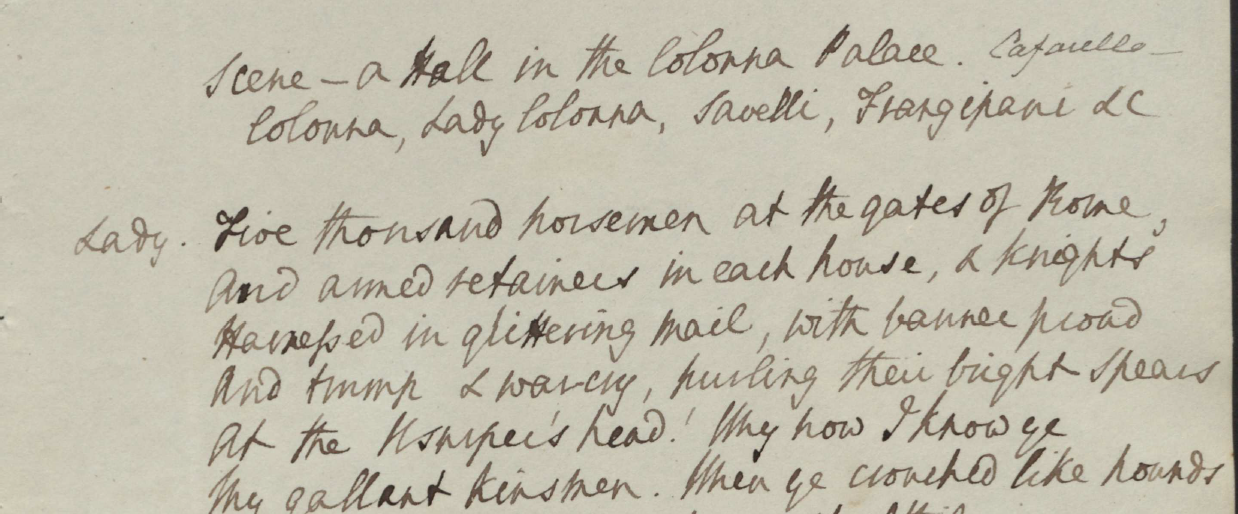 Scene – a Hall in the Colonna Palace. Cafarello –
Colonna, Lady Colonna, Savelli, Frangipani &c
Lady. Five thousand horsemen at the gates of Rome,
And armed retainers in each house, & knights
Harnessed in glittering mail, with banner proud
And trump & war-cry, hurling their bright spears
At the Usurper's head! Why now I know ye
My gallant kinsmen. When ye crouched like hounds